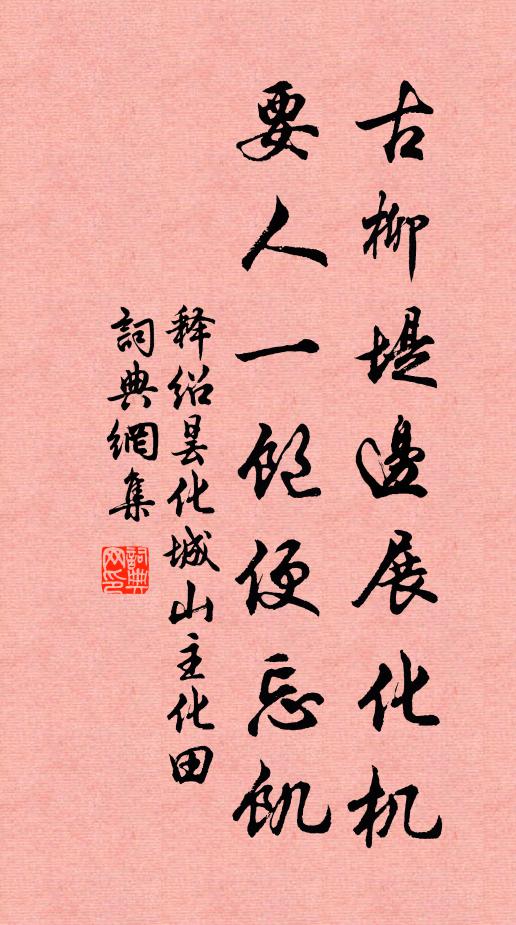 古柳堤邊展化机
要人一飽便忘飢
释绍昙化城山主化田
詞典網集
詞典网印